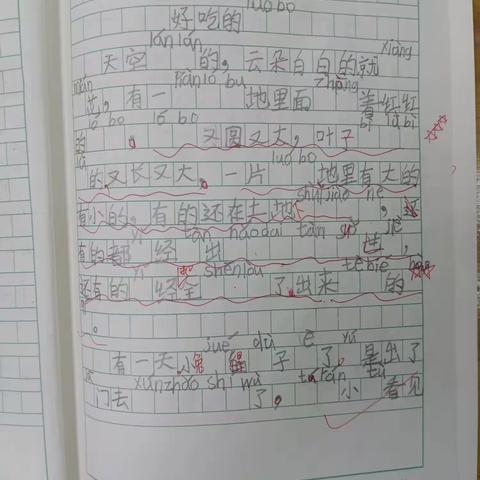 luó bo
好吃的
lán lán
天空 的，云朵白白的就 xiàng
mián pián ló bu zhǎng
花，有一 地里面 着红红
ló bo ló bo bǐ lǜ bì
的 。 又圆又大，叶子
的又长又大。一片 luó bo 地里有大的
shuì jiào ne
有小的，有的还在大地 ，还
yǐ tàn nǎo dai tàn jiè
有的都 经 出 世，
yǐ shēn lóu tè bié
还有的 经全 了出来 的
。
jué dù è yú
有一天，小兔 子 了，是出了
xún zhǎo shí wù tū rán tù
门去 了。 小 看见